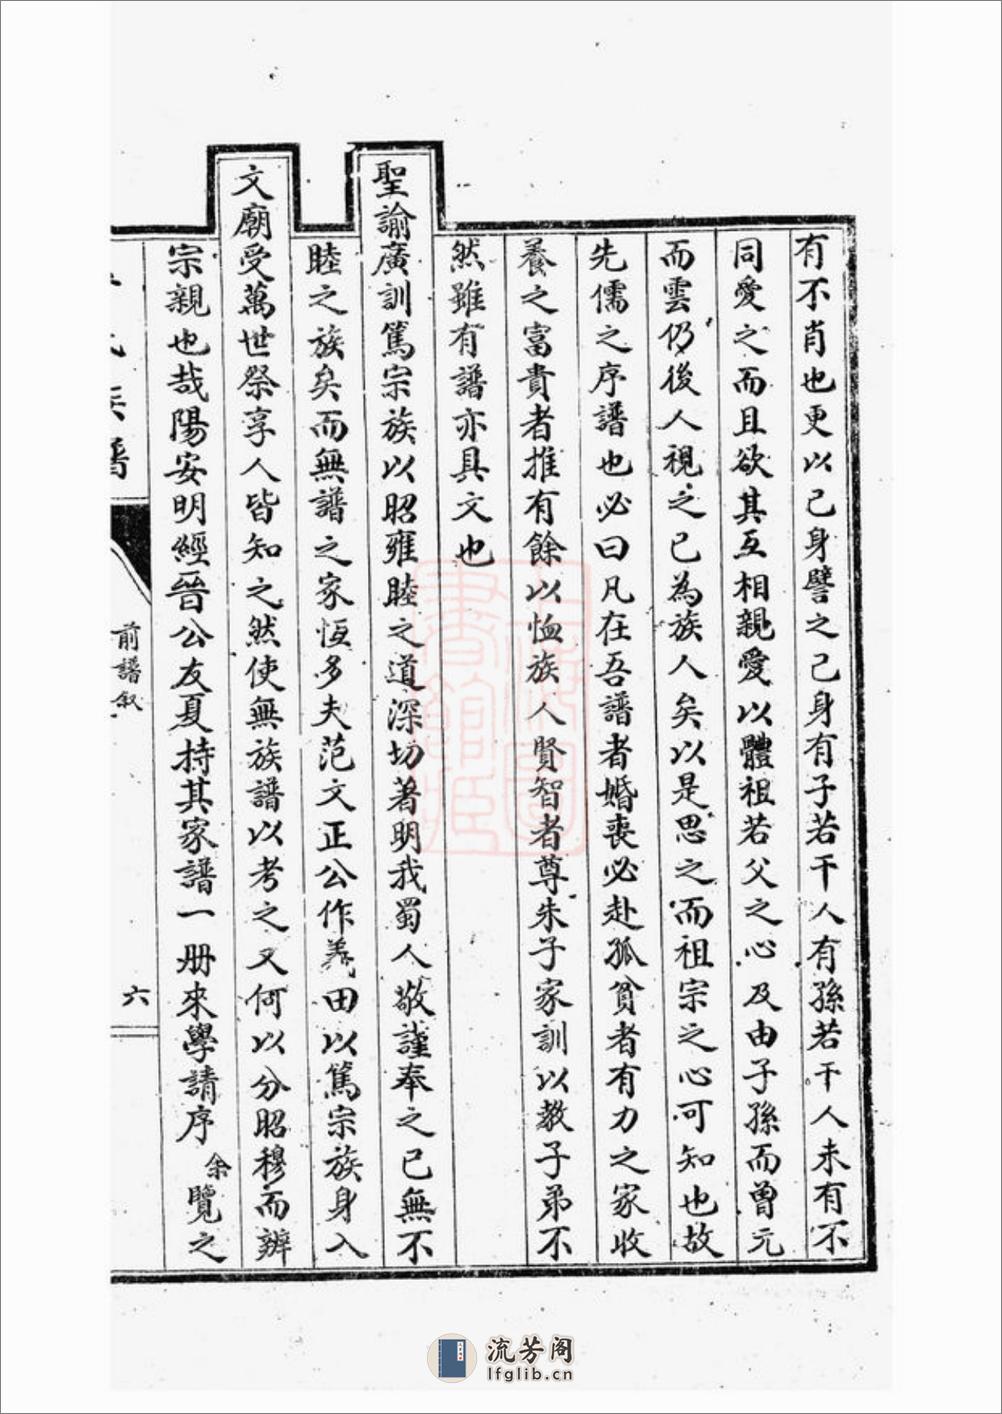 有不肖也更以己身譬之己身有子若干人有孫若干人未有不
同愛之而且欲其互相親愛以體祖若父之心及由子孫而曾元
而雲仍後人視之已為族人矣以是思之而祖宗之心可知也故
先儒之序譜也必曰凡在吾譜者婚喪必赴孤貧者有力之家收
養之富貴者推有餘以恤族人賢智者尊朱子家訓以教子弟不
然雖有譜亦具文也
聖諭廣訓篤宗族以昭雍睦之道深切著明我蜀人敬謹奉之已無不
睦之族矣而無譜之家恆多夫范文正公作義田以篤宗族身入
文廟受萬世祭享人皆知之然使無族譜以考之又何以分昭穆而辨
宗親也哉陽安明經晉公友夏持其家譜一册來學請序余覽之
氏族譜
前譜叙
六
上海圖
書館藏
流芳阁
lfglib.cn